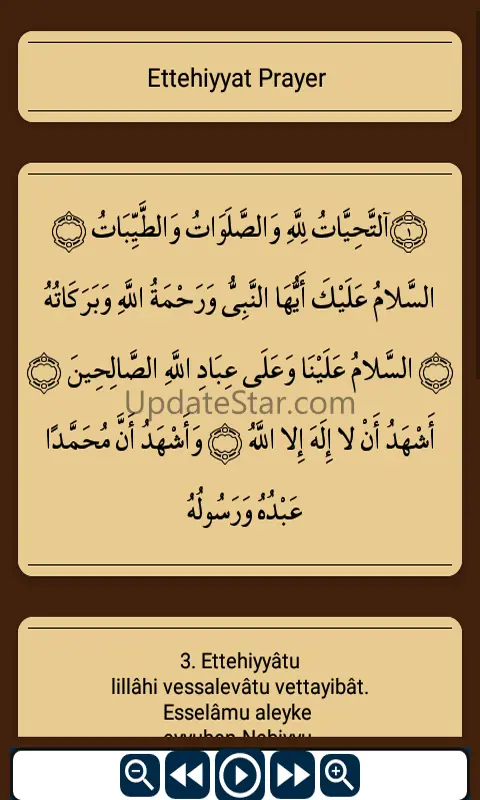 Ettehiyyat Prayer
۝١ اَلتَّحِيَّاتُ لِلَّهِ وَالصَّلَوَاتُ وَالطَّيِّبَاتُ ۝
السَّلامُ عَلَيْكَ أَيُّهَا النَّبِيُّ وَرَحْمَةُ اللَّهِ وَبَرَكَاتُهُ
۝ السَّلامُ عَلَيْنَا وَعَلَى عِبَادِ اللَّهِ الصَّالِحِينَ ۝
UpdateStar.com
أَشْهَدُ أَنْ لا إِلَهَ إِلا اللَّهُ ۝ وَأَشْهَدُ أَنَّ مُحَمَّدًا
عَبْدُهُ وَرَسُولُهُ
3. Ettehiyyâtu
lillâhi vessalevâtu vettayibât.
Esselâmu aleyke